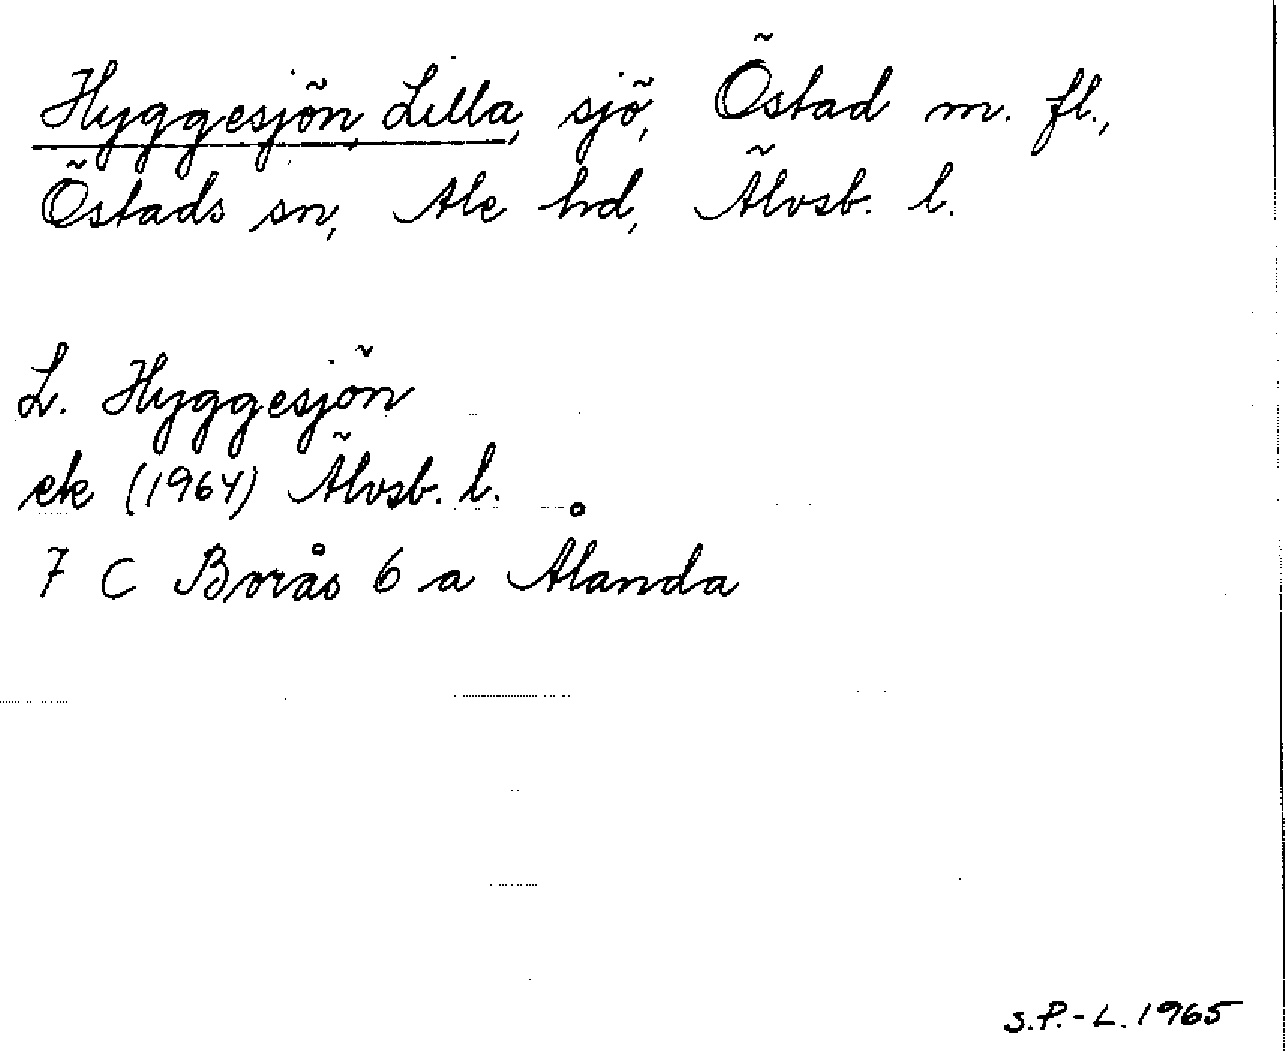 Hyggesjön, Lilla, sjö, Östad m. fl.,
Östads sn, Ale hd, Älvsb. l.
L. Hyggesjön
ek (1964) Älvsb. l.
7 C Borås 6 a Ålanda
S.P.-L. 1965